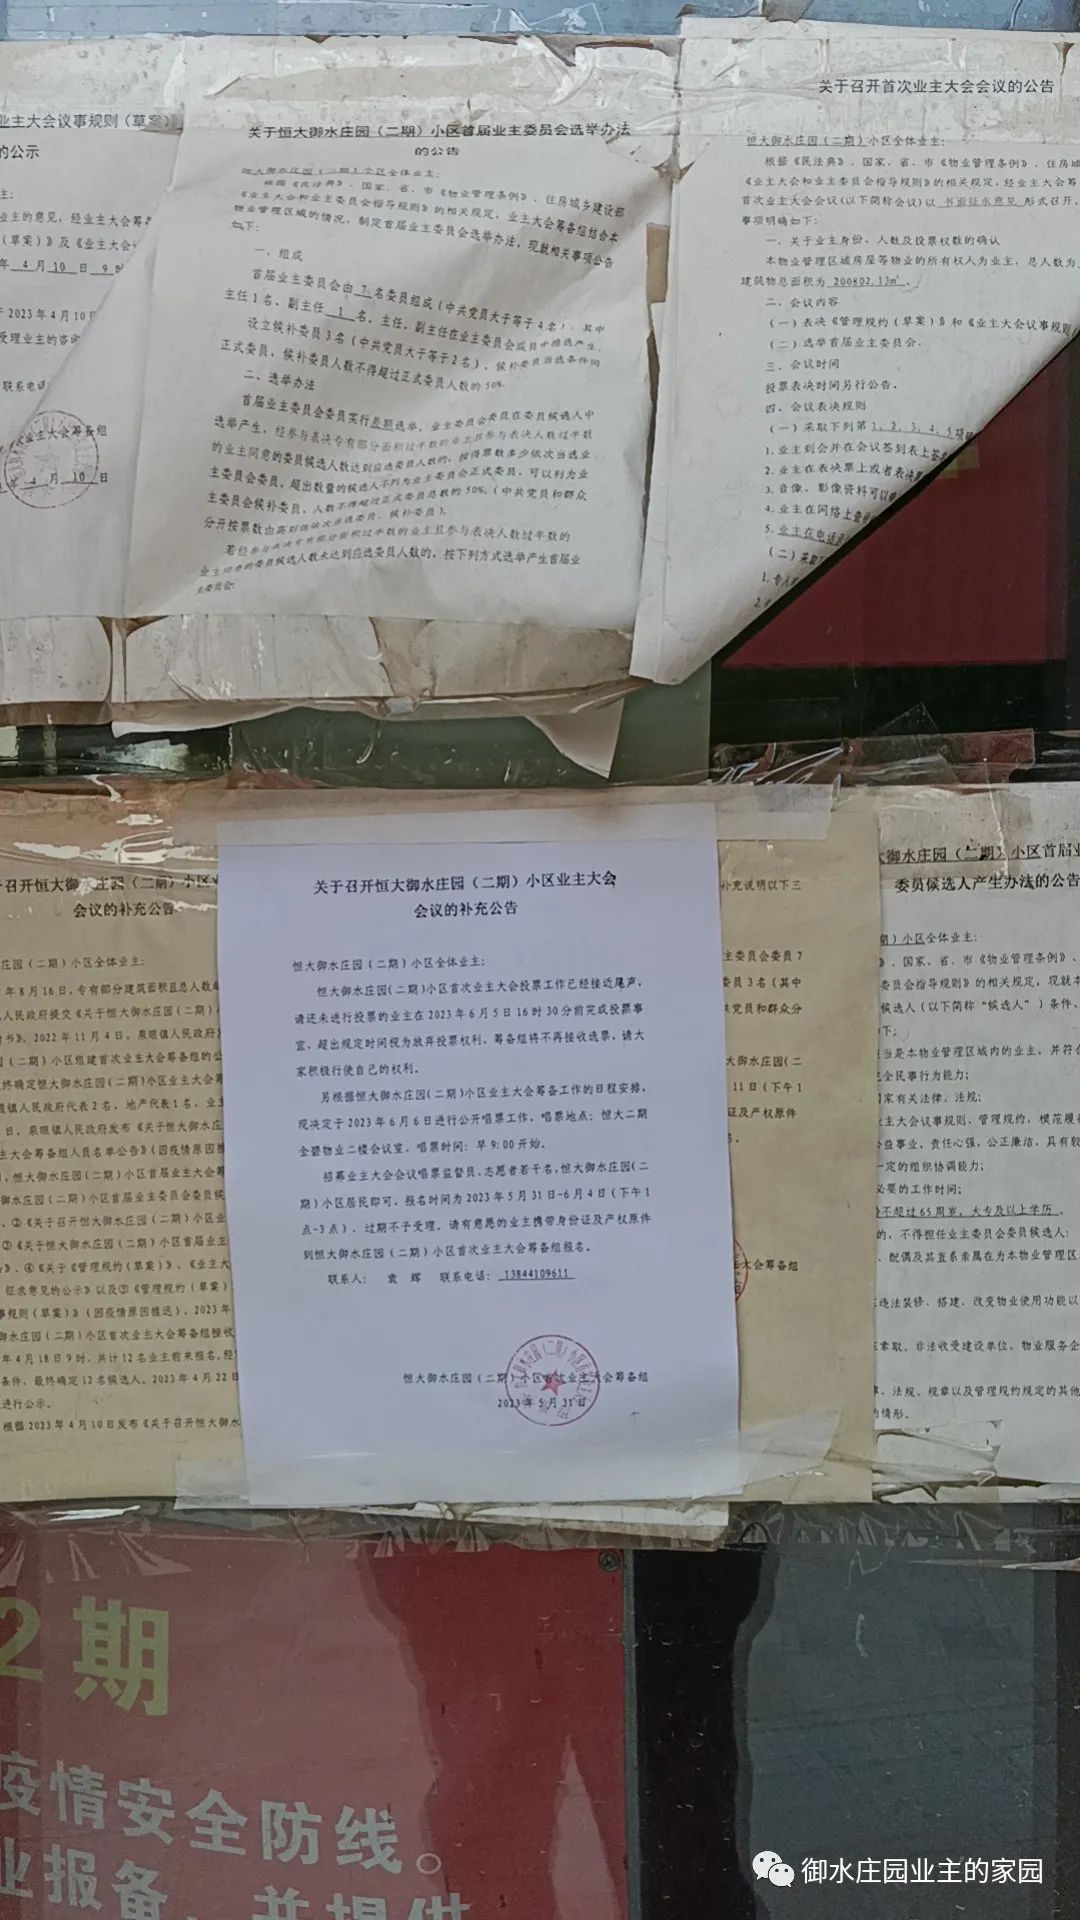 业主大会议事规则（草案）
的公示
主：
业主的意见，经业主大会筹备
（草案）》及《业主大会
年 4 月 10 日 9 时
于 2023年4月10日
受理业主的咨询
联系电话
业主大会筹备组
4 月 10 日
关于恒大御水庄园（二期）小区首届业主委员会选举办法
的公告
恒大御水庄园（二期）小区全体业主：
根据《民法典》、国家、省、市《物业管理条例》、住房城乡建设部
《业主大会和业主委员会指导规则》的相关规定，业主大会筹备组结合本
物业管理区域的情况，制定首届业主委员会选举办法，现就相关事项公告
如下：
一、组成
首届业主委员会由 7 名委员组成（中共党员大于等于4名），其中
主任1名、副主任 1 名。主任、副主任在业主委员会成员中推选产生。
设立候补委员3名（中共党员大于等于2名），候补委员当选条件同
正式委员，候补委员人数不得超过正式委员人数的50%。
二、选举办法
首届业主委员会委员实行差额选举，业主委员会委员在委员候选人中
选举产生。经参与表决专有部分面积过半数的业主且参与表决人数过半数
的业主同意的委员候选人数达到应选委员人数的，按得票数多少依次当选业
主委员会委员，超出数量的候选人不列为业主委员会正式委员，可以列为业
主委员会候补委员，人数不得超过正式委员总数的50%。（中共党员和群众
分开按票数由高到低依次当选委员、候补委员）。
若经参与表决专有部分面积过半数的业主且参与表决人数过半数的
业主同意的委员候选人数未达到应选委员人数的，按下列方式选举产生首届业
主委员会：
关于召开首次业主大会会议的公告
恒大御水庄园（二期）小区全体业主：
根据《民法典》、国家、省、市《物业管理条例》、住房城
《业主大会和业主委员会指导规则》的相关规定，经业主大会筹
首次业主大会会议(以下简称会议)以 书面征求意见 形式召开，
事项明确如下：
一、关于业主身份、人数及投票权数的确认
本物业管理区域房屋等物业的所有权人为业主，总人数为
建筑物总面积为 200802.13㎡ 。
二、会议内容
（一）表决《管理规约（草案）》和《业主大会议事规则
（二）选举首届业主委员会。
三、会议时间
投票表决时间另行公告。
四、会议表决规则
（一）采取下列第 1、2、3、4、5 项
1. 业主到会并在会议签到表上签
2. 业主在表决票上或者表决
3. 音像、影像资料可以
4. 业主在网络上查
5. 业主在电话
（二）采取
1. 专人
2.
召开恒大御水庄园（二期）小区业
会议的补充公告
庄园（二期）小区全体业主：
年8月16日，专有部分建筑面积且总人数
人民政府提交《关于恒大御水庄园（二期）
书》。2022年11月4日，泉眼镇人民政府
（二期）小区组建首次业主大会筹备组的公
终确定恒大御水庄园（二期）小区业主大会筹
眼镇人民政府代表2名、地产代表1名、业主
日，泉眼镇人民政府发布《关于恒大御水庄
主大会筹备组人员名单公告》（因疫情原因推
，恒大御水庄园（二期）小区首届业主大会筹
御水庄园（二期）小区首届业主委员会委员候
、②《关于召开恒大御水庄园（二期）小区业
③《关于恒大御水庄园（二期）小区首届业主
》、④《关于《管理规约（草案）》、《业主大
征求意见的公示》以及⑤《管理规约（草案）
事规则（草案）》（因疫情原因推迟）。2023年
御水庄园（二期）小区首次业主大会筹备组接收
年4月18日9时，共计12名业主前来报名，经
条件，最终确定12名候选人。2023年4月22日
进行公示。
根据2023年4月10日发布《关于召开恒大御水
关于召开恒大御水庄园（二期）小区业主大会
会议的补充公告
恒大御水庄园（二期）小区全体业主：
恒大御水庄园（二期）小区首次业主大会投票工作已经接近尾声，
请还未进行投票的业主在2023年6月5日16时30分前完成投票事
宜，超出规定时间视为放弃投票权利，筹备组将不再接收选票，请大
家积极行使自己的权利。
另根据恒大御水庄园（二期）小区业主大会筹备工作的日程安排，
现决定于2023年6月6日进行公开唱票工作，唱票地点：恒大二期
金碧物业二楼会议室，唱票时间：早9:00开始。
招募业主大会会议唱票监督员、志愿者若干名，恒大御水庄园（二
期）小区居民即可，报名时间为2023年5月31日-6月4日（下午1
点-3点），过期不予受理，请有意愿的业主携带身份证及产权原件
到恒大御水庄园（二期）小区首次业主大会筹备组报名。
联系人： 袁 辉 联系电话：13844109611
恒大御水庄园（二期）小区首次业主大会筹备组
2023年5月31日
补充说明以下三
主委员会委员7
委员3名（其中
党员和群众分
大御水庄园（二
11日（下午1
证及产权原件
主大会筹备组
大御水庄园（二期）小区首届业
委员候选人产生办法的公告
期）小区全体业主：
》、国家、省、市《物业管理条例》、
委员会指导规则》的相关规定，现就本
候选人（以下简称“候选人”）条件、
下：
当是本物业管理区域内的业主，并符合
完全民事行为能力；
国家有关法律、法规；
主大会议事规则、管理规约，模范履
公益事业，责任心强，公正廉洁，具有较
一定的组织协调能力；
必要的工作时间；
不超过65周岁，大专及以上学历 。
的，不得担任业主委员会委员候选人：
、配偶及其直系亲属在为本物业管理区
违法装修、搭建、改变物业使用功能以
索取、非法收受建设单位、物业服务企
、法规、规章以及管理规约规定的其他
的情形。
2期
疫情安全防线。
业报备，并提供
御水庄园业主的家园